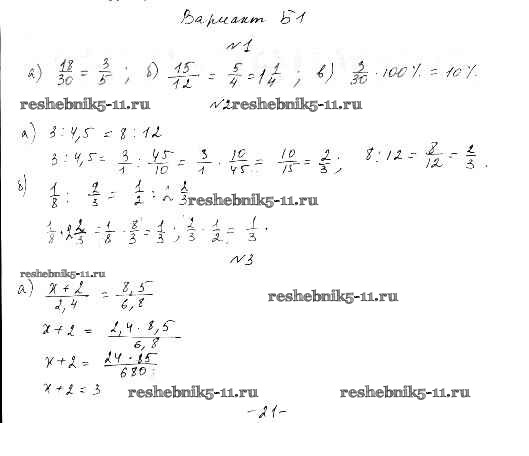 Вариант Б1
№1
а) 18/30 = 3/5 ; б) 15/12 = 5/4 = 1 1/4 ; в) 3/30 · 100% = 10%
reshebnik5-11.ru №2 reshebnik5-11.ru
а) 3 : 4,5 = 8 : 12
3 : 4,5 = 3/1 : 45/10 = 3/1 · 10/45 = 10/15 = 2/3 ; 8 : 12 = 8/12 = 2/3 .
б) 1/8 : 2/3 = 1/2 : 2 2/3 reshebnik5-11.ru
1/8 · 2 2/3 = 1/8 · 8/3 = 1/3 ; 2/3 · 1/2 = 1/3 .
№3
reshebnik5-11.ru
а) x + 2/2,4 = 8,5/6,8 reshebnik5-11.ru
x + 2 = 2,4 · 8,5/6,8
x + 2 = 24 · 85/680
x + 2 = 3 reshebnik5-11.ru reshebnik5-11.ru
-21-